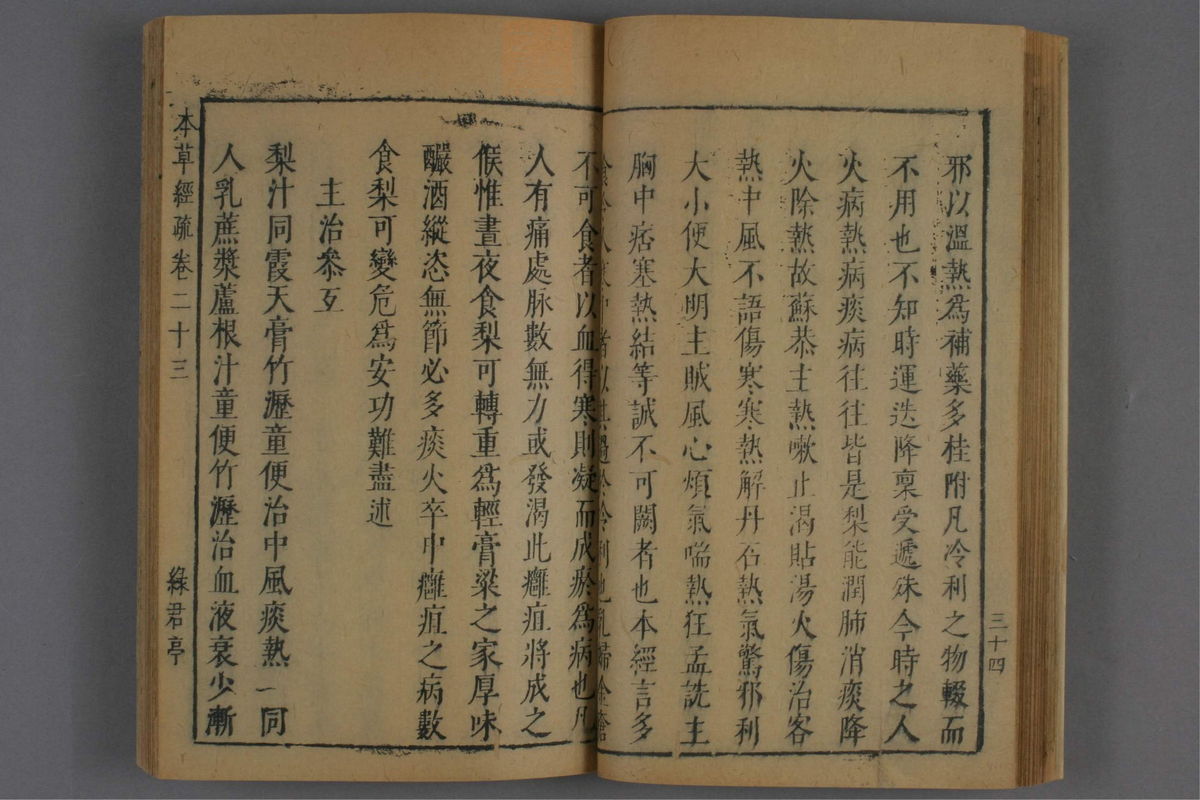 邪以溫熱爲補藥多桂附凡冷利之物輟而
不用也不知時運迭降稟受遞殊今時之人
火病熱病痰病往往皆是梨能潤肺消痰降
火除熱故蘇恭主熱嗽止渴貼湯火傷治客
熱中風不語傷寒寒熱解丹石熱氣驚邪利
大小便大明主賊風心煩氣喘熱狂孟詵主
胸中痞塞熱結等誠不可闕者也本經言多
食令人寒中者以其過於冷利也乳婦金瘡
不可食者以血得寒則凝而成瘀爲病也凡
人有痛處脉數無力或發渴此癰疽將成之
候惟晝夜食梨可轉重爲輕膏粱之家厚味
釅酒縱恣無節必多痰火卒中癰疽之病數
食梨可變危爲安功難盡述
主治參互
梨汁同霞天膏竹瀝童便治中風痰熱 一同
人乳蔗漿蘆根汁童便竹瀝治血液衰少漸
三十四
本草經疏卷二十三
綠君亭